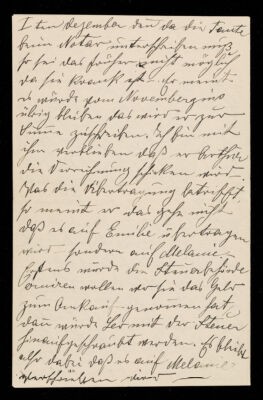 I ten Dezember den da die Tante
beim Notar unterschreiben muß
so sei das früher nicht möglich
da sie krank ist. Er meint
es würde vom Novemberzins
übrig bleiben das wird er zur
Summe zuschreiben. Ich bin mit
ihm verblieben daß er Arthur
die Verrechnung schicken wird.
Was die Übertragung betrifft,
so meint er das gehe nicht
daß es auf Emilie übertragen
wird sondern auf Melanie
würde die Steuerbehörde
wollen wo sie das Geld
zum Ankauf genommen hat,
dan würde Leo mit der Steuer
hinaufgeschraubt werden. Es bleibt
also dabei daß es auf Melanie
verschrieben wird —